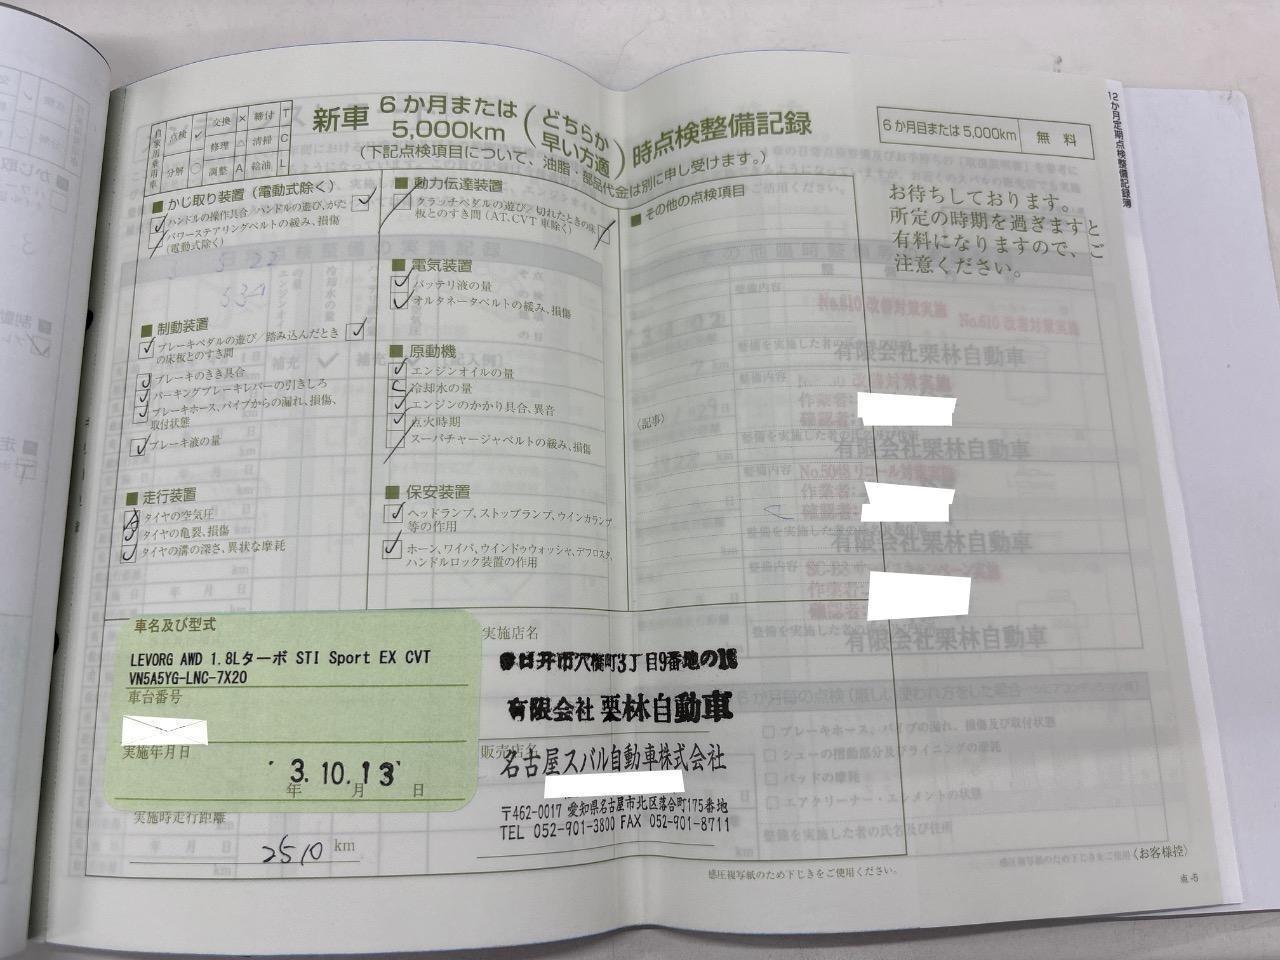 12か月定期点検整備記録簿
自家用乗車
点検 ✓ 交換 × 締付 T
修理 △ 清掃 C
分解 ○ 調整 A 給油 L
新車 6か月または5,000km(どちらか早い方適)時点検整備記録
(下記点検項目について、油脂・部品代金は別に申し受けます。)
6か月目または5,000km 無料
お待ちしております。
所定の時期を過ぎますと
有料になりますので、ご
注意ください。
■ かじ取り装置(電動式除く)
ハンドルの操作具合/ハンドルの遊び、がた
パワーステアリングベルトの緩み、損傷
(電動式除く)
■ 制動装置
ブレーキペダルの遊び/踏み込んだとき
の床板とのすき間
ブレーキのきき具合
パーキングブレーキレバーの引きしろ
ブレーキホース、パイプからの漏れ、損傷、
取付状態
ブレーキ液の量
■ 走行装置
タイヤの空気圧
タイヤの亀裂、損傷
タイヤの溝の深さ、異状な摩耗
■ 動力伝達装置
クラッチペダルの遊び/切れたときの床
板とのすき間(AT、CVT車除く)
■ 電気装置
バッテリ液の量
オルタネータベルトの緩み、損傷
■ 原動機
エンジンオイルの量
冷却水の量
エンジンのかかり具合、異音
点火時期
スーパチャージャベルトの緩み、損傷
■ 保安装置
ヘッドランプ、ストップランプ、ウインカランプ
等の作用
ホーン、ワイパ、ウインドゥウォッシャ、デフロスタ、
ハンドルロック装置の作用
■ その他の点検項目
〈記事〉
車名及び型式
LEVORG AWD 1.8Lターボ STI Sport EX CVT
VN5A5YG-LNC-7X20
車台番号
実施年月日
3.10.13
年 月 日
実施時走行距離
2510 km
実施店名
春日井市穴橋町3丁目9番地の16
有限会社 栗林自動車
販売店名
名古屋スバル自動車株式会社
〒462-0017 愛知県名古屋市北区落合町175番地
TEL 052-901-3800 FAX 052-901-8711
感圧複写紙のため下じきをご使用ください。
〈お客様控〉
点-5